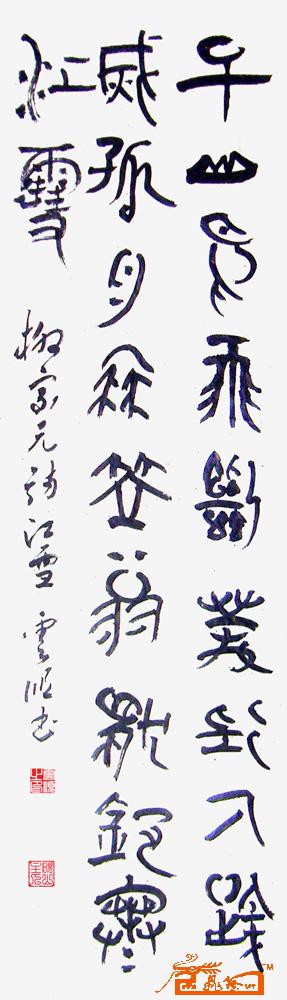 千山鳥飛絕萬徑人蹤
滅孤舟蓑笠翁獨釣寒
江雪
柳宗元诗江雪 雲 书